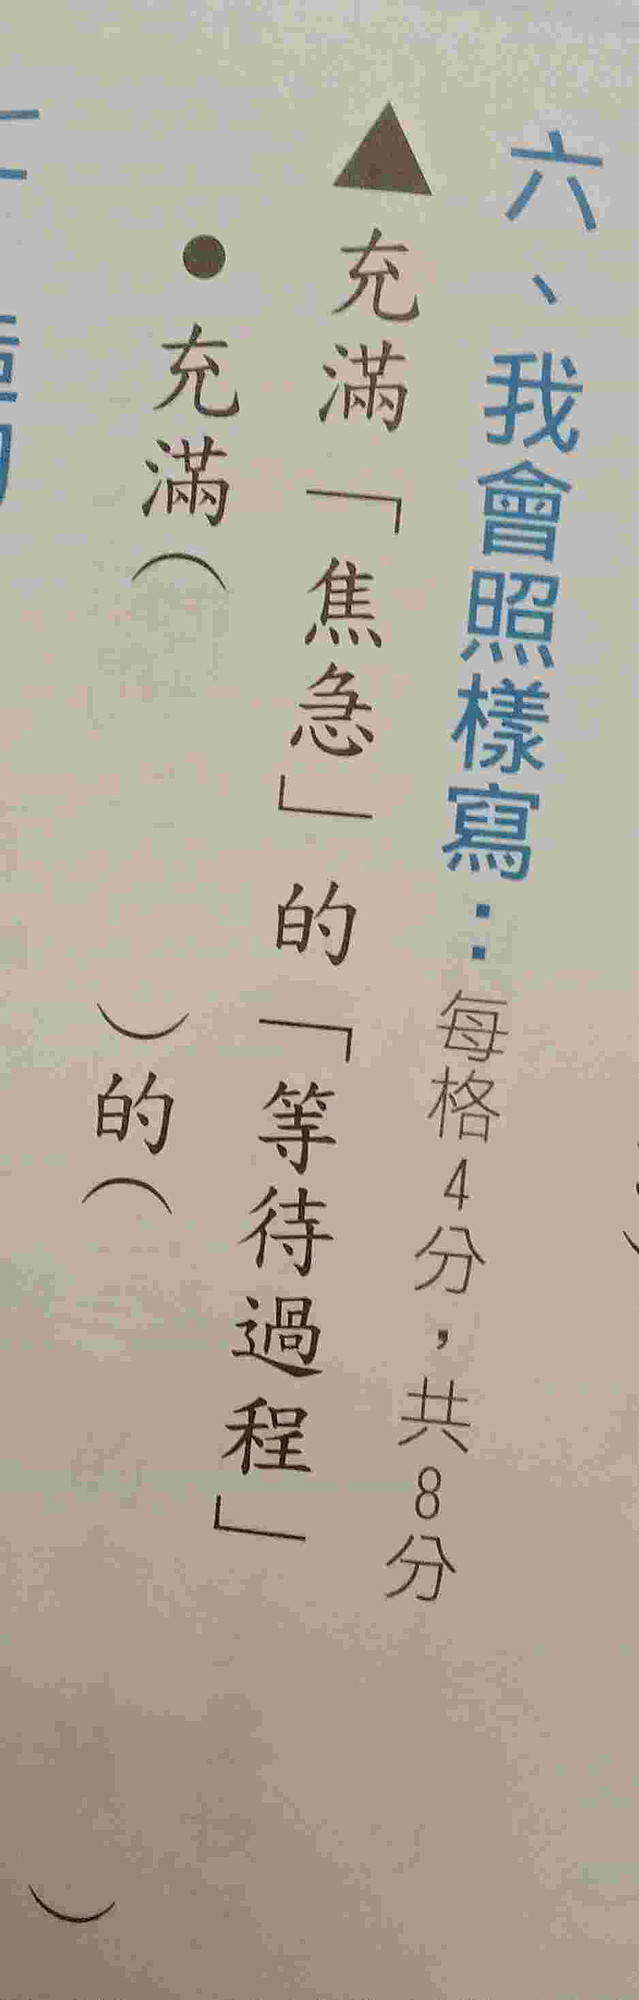 六、我會照樣寫：每格4分，共8分
▲充滿「焦急」的「等待過程」
●充滿（　　　）的（　　　　　）